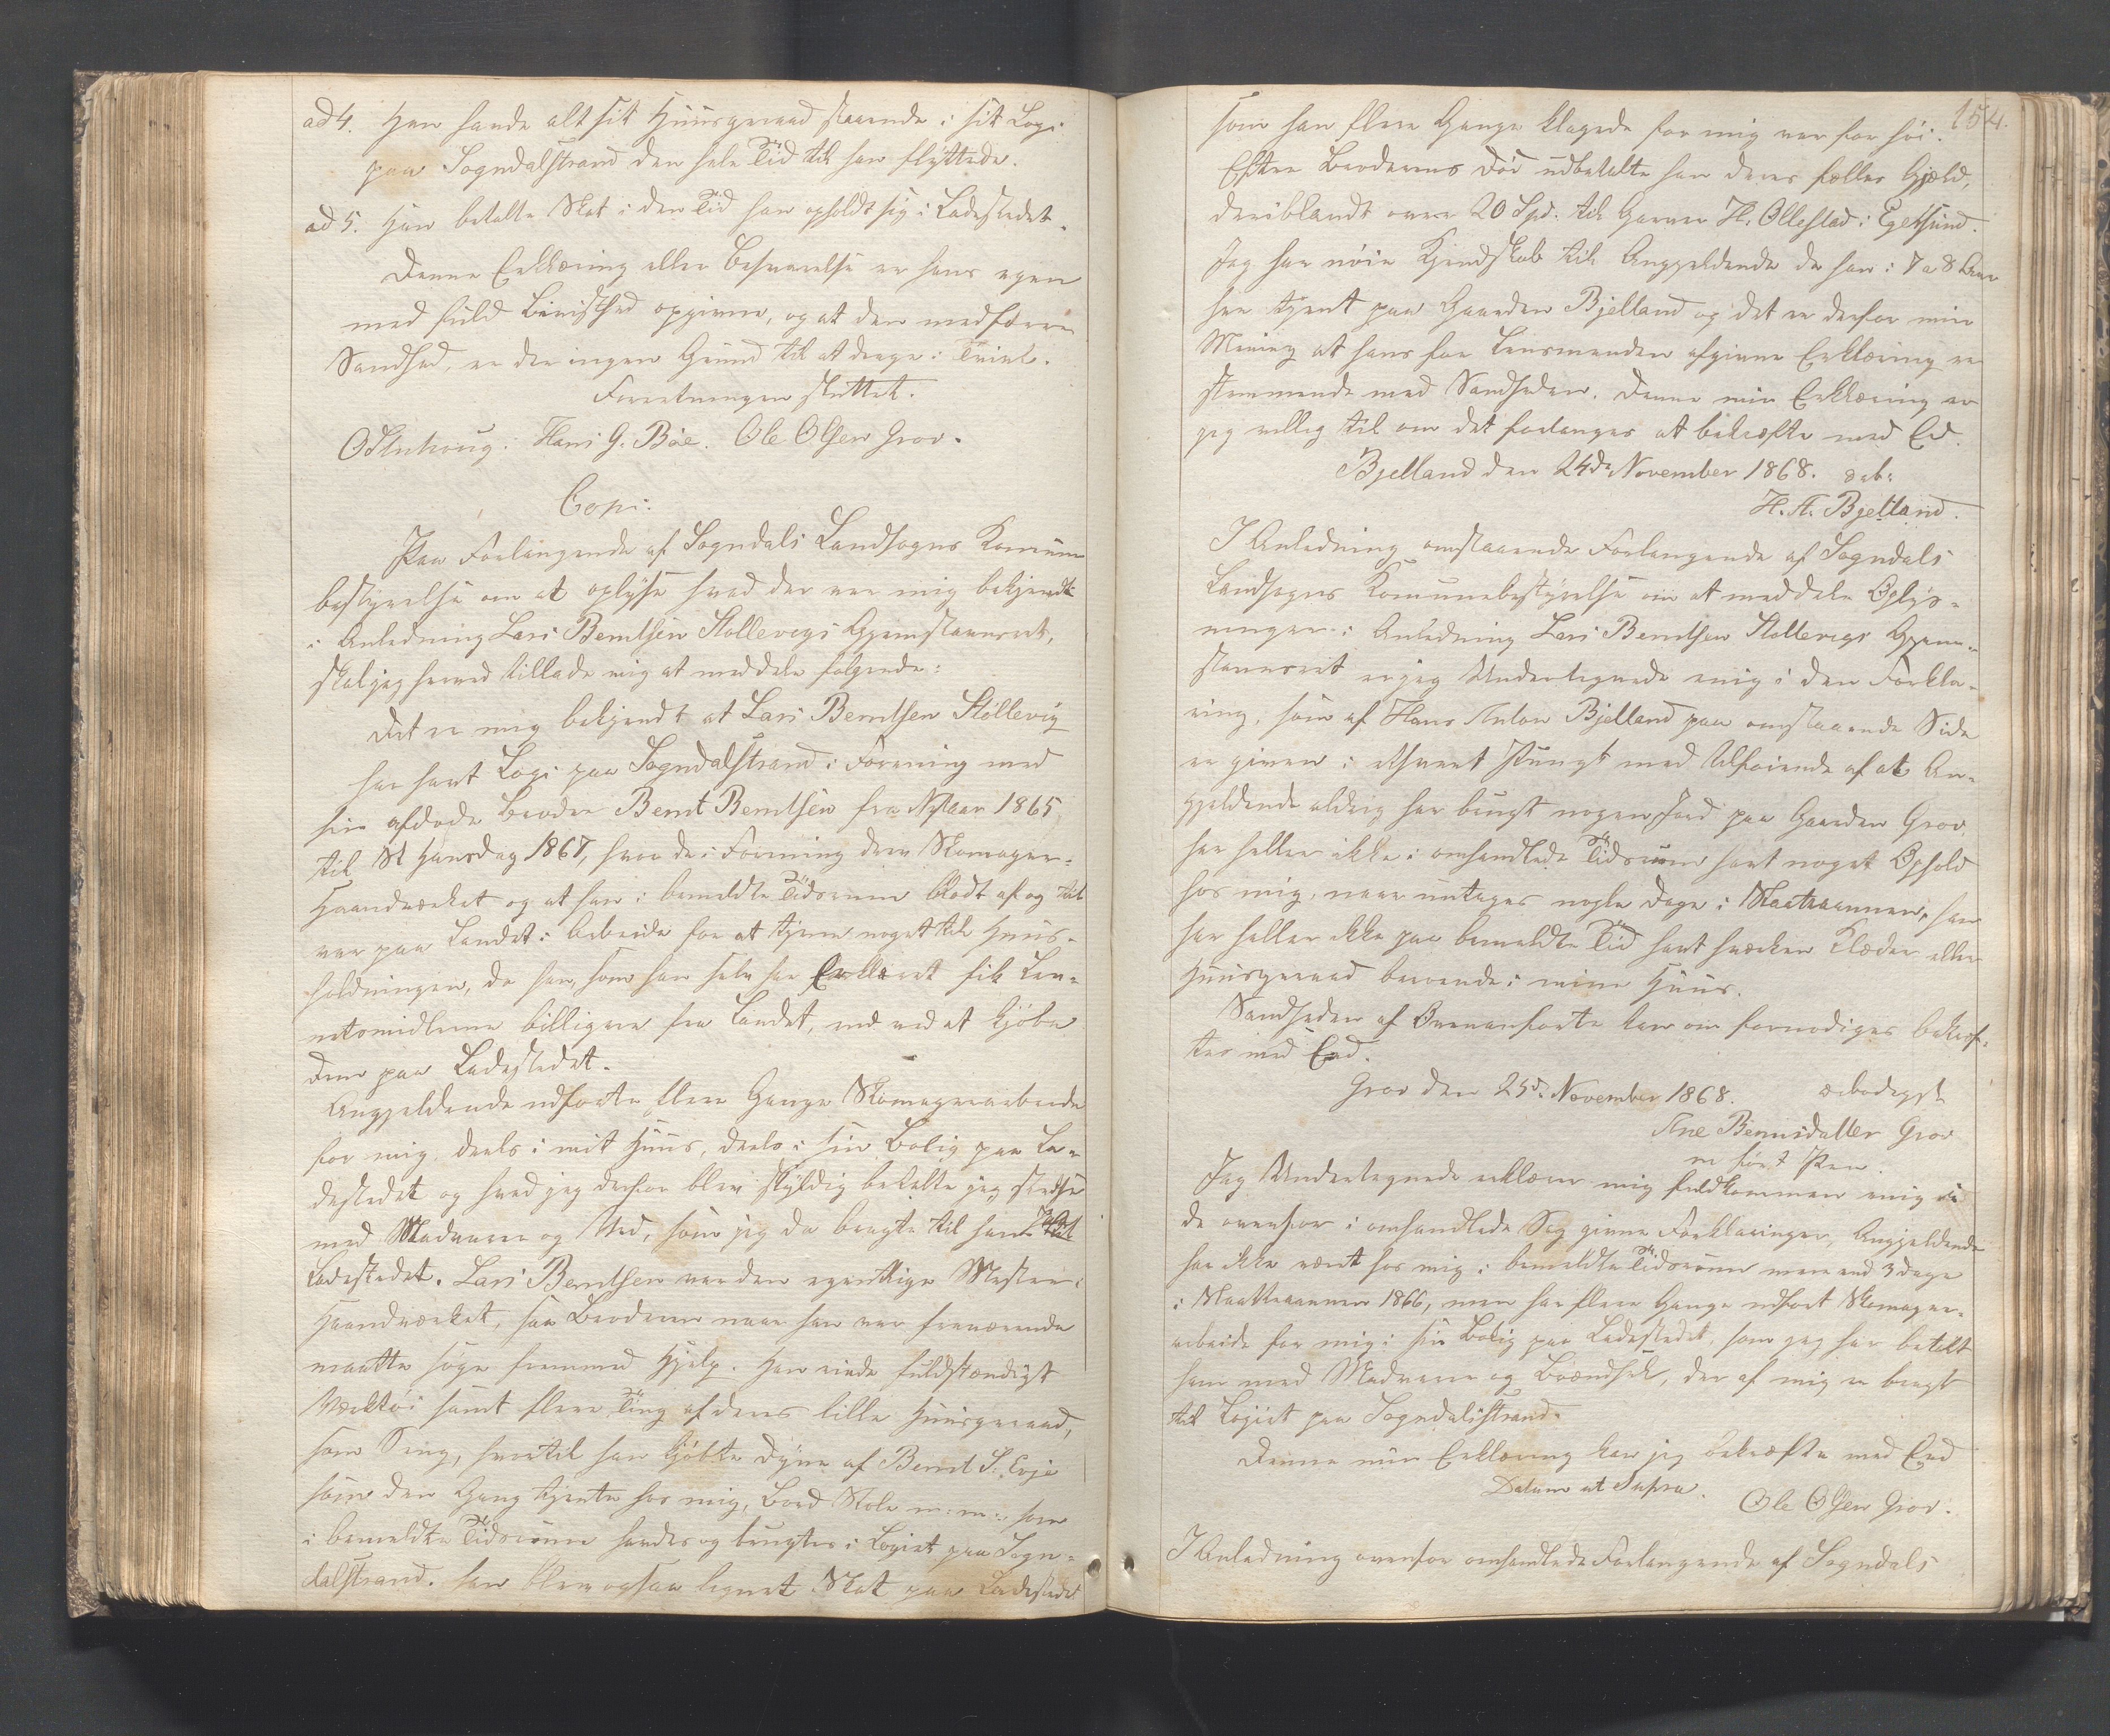 ad 4. Han havde alt sit Huusgeraad staaende i sit Logi
paa Sogndalstrand den hele Tid til han flyttede.
ad 5. Han betalte Skat i den Tid han opholdt sig i Ladestedet.
Denne Erklæring eller Besvarelse er hans egen
med fuld Bevisthed opgiven, og at den medfører
Sandhed, er der ingen Grund til at drage i Tvivl.
Forretningen sluttet.
Hans G. Böe. Ole Olsen Grov.
Copi:
Paa Forlangende af Sogndals Landsogns Komune
bestyrelse om at oplyse hvad der var mig bekjendt
i Anledning Lars Berntsen Stollevigs Hjemstavnsret,
skal jeg herved tillade mig at meddele følgende:
Det er mig bekjendt at Lars Berntsen Stöllevig
har havt Logi paa Sogndalstrand i Forening med
sin afdøde Broder Bernt Berntsen fra Nytaar 1865
til St Hansdag 1867, hvor de i Forening drev Skomager-
Haandværket og at han i bemeldte Tidsrum titodt af og til
var paa Landet i Arbeide for at tjene noget til Huus-
holdningen, da han, som han selv har Erklæret fik Lev-
netsmidlerne billigere fra Landet, end ved at kjøbe
dem paa Ladestedet.
Angjeldende udførte flere Gange Skomagerarbeide
for mig, deels i mit Huus, deels i sin Bolig paa La-
destedet og hvad jeg derfor blev skyldig betalte jeg stedse
med Madvarer og Ved, som jeg da bragte til ham
Ladestedet. Lars Berntsen var den egentlige Mester i
Haandværket, saa Broderen naar han var fraværende
maatte søge fremmed Hjelp. Han eiede fuldstændigt
Værktøi samt flere Ting af deres lille Huusgeraad,
som Seng, hvortil han kjøbte Dyne af Bernt S. Evje
som den Gang tjente hos mig, Bord Stole m: m: som
i bemeldte Tidsrum havdes og brugtes i Logiet paa Sogn-
dalstrand. Han blev ogsaa lignet Skat paa Ladestedet
154.
som han flere Gange klagede for mig var for høi.
Efter Broderens Död udbetalte han deres fælles Gjæld,
deriblandt over 20 Spd. til Garver H. Ollestad i Egersund.
Jeg har nöie Kjendskab til Angjeldende da han i 7 a 8 Aar
har tjent paa Gaarden Bjelland og det er derfor min
Mening at hans for Lensmanden afgivne Erklæring er
stemmende med Sandheden. Denne min Erklæring er
jeg villig til om det forlanges at bekræfte med Ed.
Bjelland den 24de November 1868. ærb:
H. A. Bjelland.
I Anledning omstaaende Forlangende af Sogndals
Landsogns Komunebestyrelse om at meddele Oplys-
ninger i Anledning Lars Berntsen Stollevigs Hjem-
stavnsret er jeg Undertegnede enig i den Forkla-
ring, som af Hans Anton Bjelland paa omstaaende Side
er given i ethvert Pungt med Tilføiende af at An-
gjeldende aldrig har brugt nogen Jord paa Gaarden Grov.
har heller ikke i omhandlede Tidsrum havt noget Ophold
hos mig, naar untages nogle Dage i Slaataannen, han
har heller ikke paa bemeldte Tid havt hverken Klæder eller
Huusgeraad beroende i mine Huus.
Sandheden af Ovenanførte kan om fornødiges bekræf-
tes med Eed.
Grov den 25de November 1868. ærbødigst
Ane Berntsdatter Grov
m ført Pen.
Jeg Undertegnede erklærer mig fuldkommen enig i
de ovenfor i omhandlede Sag givne Forklaringer, Angjeldende
har ikke været hos mig i bemeldte Tidsrum mere end 3 dage
i Slaattaannen 1866, men har flere Gange udført Skomager-
arbeide for mig i sin Bolig paa Ladestedet, som jeg har betalt
ham med Madvarer og Brændsel, der af mig er bragt
til Logiet paa Sogndalsstrand.
Denne min Erklæring kan jeg bekræfte med Eed
Datum ut Supra.
Ole Olsen Grov.
I Anledning ovenfor omhandlede Forlangende af Sogndals